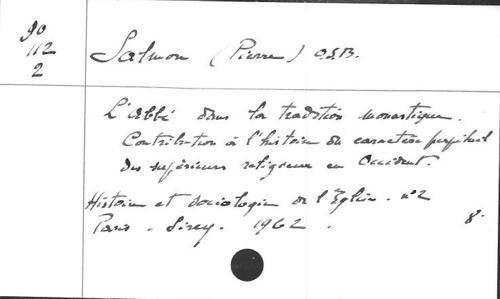 90
112
2
Salmon (Pierre) O.S.B.
L'abbé dans la tradition monastique.
Contribution à l'histoire du caractère perpétuel
des supérieurs religieux en Occident.
Histoire et sociologie de l'Église. n°2
Paris. Sirey. 1962. 8°